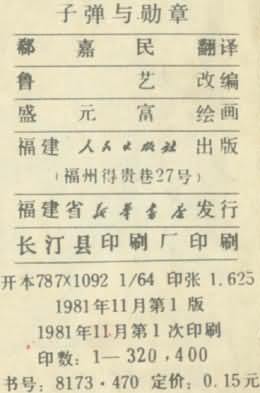 子弹与勋章
郗嘉民 翻译
鲁艺 改编
盛元富 绘画
福建人民出版社 出版
(福州得贵巷27号)
福建省新华书店发行
长汀县印刷厂印刷
开本787×1092 1/64 印张 1.625
1981年11月第1版
1981年11月第1次印刷
印数:1—320,400
书号:8173·470 定价:0.15元